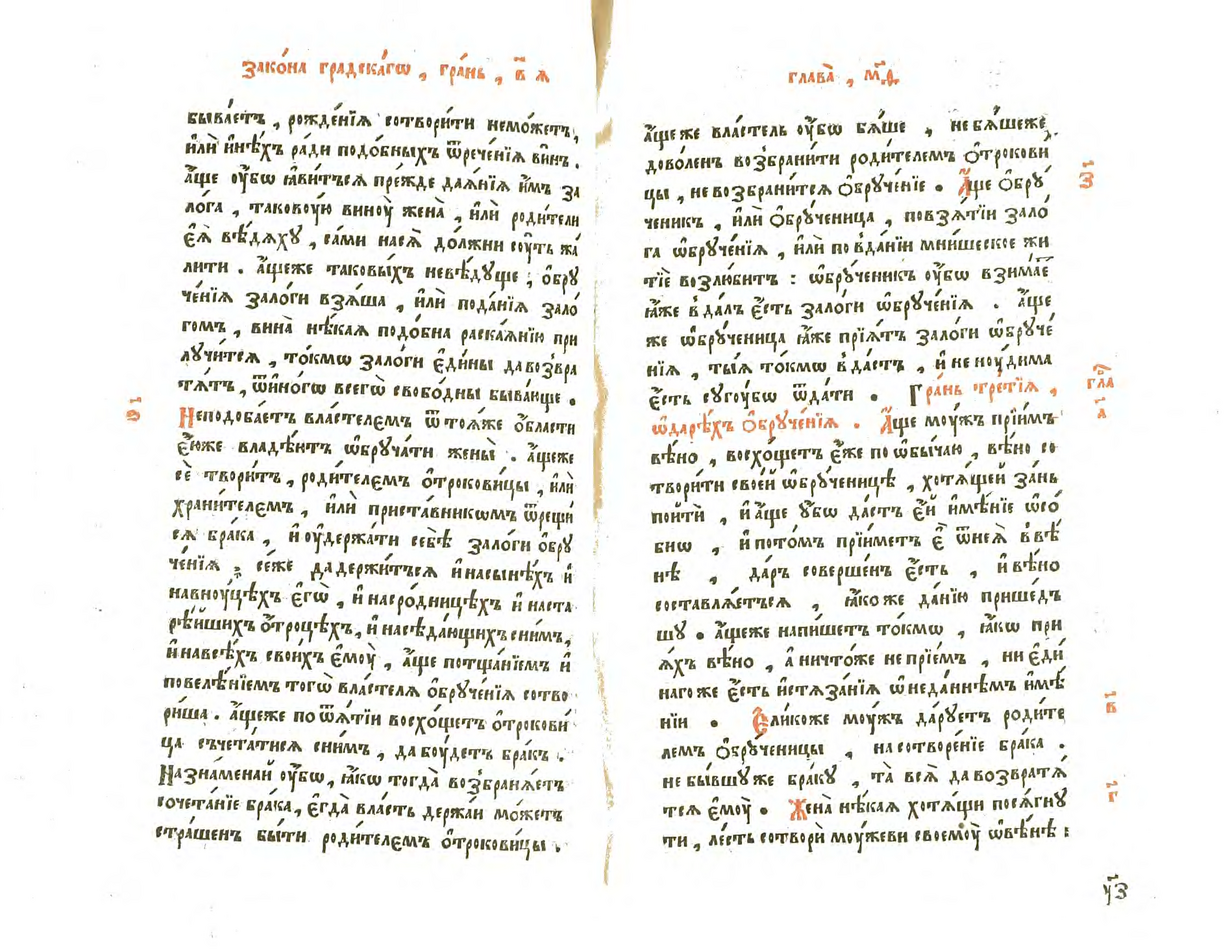 Зако́на гра́дскагѡ , гра́нь , в҃ ѧ
быва́етъ , рожде́нїѧ сотвори́ти немо́жетъ,
и҆лѝ и҆нѣ́хъ ра́ди подо́бныхъ ѿрече́нїѧ ви́нъ .
а҆́ще ᲂу҆́бѡ ꙗ҆ви́тъсѧ пре́жде даѧ́нїѧ и҆́мъ за
ло́га , такову́ю винꙋ̀ жена̀ , и҆лѝ роди́тели
є҆ѧ̀ вѣ́дѧхꙋ , са́ми насѧ̀ до́лжни сꙋ́ть жа́
лити . а҆́щеже таковы́хъ невѣ́дꙋще ; ѻ҆брꙋ
че́нїѧ зало́ги взѧ́ша , и҆лѝ пода́нїѧ зало́
гомъ , вина̀ нѣ́каѧ подо́бна раска́ѧнїю при
лꙋчи́тсѧ , то́кмѡ зало́ги є҆ди́ны давозвра
тѧ́тъ , ѿи́ногѡ всегѡ̀ свобо́дны быва́юще .
Неподоба́етъ властелемъ ѿ тоѧ́же ѻ҆́бласти
є҆́юже владѣ́етъ ѡ҆брꙋча́ти жены̀ . а҆́щеже
сѐ твори́тъ , роди́телемъ ѻ҆трокови́цы , и҆лѝ
храни́телемъ , и҆лѝ приста́вникѡмъ ѿрещи́
сѧ бра́ка , и҆ ᲂу҆держа́ти себѣ̀ зало́ги ѻ҆брꙋ
че́нїѧ ; се́же дадержи́тъсѧ и҆насынѣ́хъ и҆
навнꙋ́цѣхъ є҆гѡ̀ , и҆насро́дницѣхъ и҆ наста
рѣ́йшихъ ѻ҆́троцѣхъ , и҆насѣдаю́щихъ сни́мъ,
и҆навсѣ́хъ свои́хъ є҆мꙋ̀ , а҆́ще потща́нїемъ и҆
повелѣ́нїемъ тогѡ̀ вла́стелѧ ѻ҆брꙋче́нїѧ сотво
ри́ша . а҆́щеже по ѿѧ́тїи восхо́щетъ ѻ҆трокови́
ца съчета́тисѧ сни́мъ , да бꙋ́детъ бра́къ .
Назна́менай ᲂу҆́бѡ , ꙗ҆́кѡ тогда̀ возбранѧ́етъ
сочета́нїе бра́ка , є҆гда̀ вла́сть держа́и мо́жетъ
стра́шенъ бы́ти роди́телемъ ѻ҆трокови́цы .
ѳ҃і
глава̀ , м҃ѳ
а҆́щеже вла́стель ᲂу҆́бѡ бѧ́ше , не бѧ́шеже
дово́ленъ возбрани́ти роди́телемъ ѻ҆трокови
цы , не возбрани́тсѧ ѻ҆брꙋче́нїе . А҆́ще ѻ҆брꙋ́
ченикъ , и҆лѝ ѻ҆брꙋ́ченица , повзѧ́тїи зало́
га ѡ҆брꙋче́нїѧ , и҆лѝ по вда́нїи мни́шеское жи
тїѐ возлю́битъ : ѡ҆брꙋ́ченикъ ᲂу҆́бѡ взима́е
ꙗ҆́же в да́лъ є҆́сть зало́ги ѡ҆брꙋче́нїѧ . а҆́ще
же ѡ҆брꙋ́ченица ꙗ҆́же прїѧ́тъ зало́ги ѡ҆брꙋче́
нїѧ , ты́ѧ то́кмѡ в да́стъ , и҆ не нꙋ́дима
є҆́сть сꙋгꙋ́бѡ ѿда́ти . Гра́нь тре́тїѧ ,
ѡ҆да́рѣхъ ѻ҆брꙋче́нїѧ . А҆́ще мꙋ́жъ прїи́мъ
вѣ́но , восхо́щетъ є҆́же по ѡ҆бы́чаю , вѣ́но со
твори́ти свое́й ѡ҆брꙋ́ченицѣ , хотѧ́щей за́нь
пои́ти , и҆ а҆́ще ᲂу҆́бѡ да́стъ є҆́й и҆мѣ́нїе ѡ҆со́
бнѡ , и҆ пото́мъ прїи́метъ є҆̀ ѿнеѧ̀ в вѣ́
нѣ , да́ръ соверше́нъ є҆́сть , и҆ вѣ́но
составлѧ́етъсѧ , ꙗ҆́ко же да́нїю прише́дъ
шꙋ . а҆́щеже напи́шетъ то́кмѡ , ꙗ҆́кѡ при
ѧ́хъ вѣ́но , а҆ ничто́же не прїе́мъ , ни є҆ди́
наго же є҆́сть и҆стѧза́нїѧ ѡ҆неда́ннѣмъ и҆мѣ́
нїи . Е҆ли́коже мꙋ́жъ да́рꙋетъ роди́те
лемъ ѻ҆брꙋ́ченицы , на сотворе́нїе бра́ка .
не бы́вшꙋ же бра́кꙋ , та̀ всѧ̀ да возвратѧ́
тсѧ є҆мꙋ̀ . Жена̀ нѣ́каѧ хотѧ́щи посѧ́гнꙋ
ти , ле́сть сотворѝ мꙋ́жеви своемꙋ̀ ѡ҆вѣ́нѣ :
з҃і
гла
а҃
в҃
г҃
у҃з